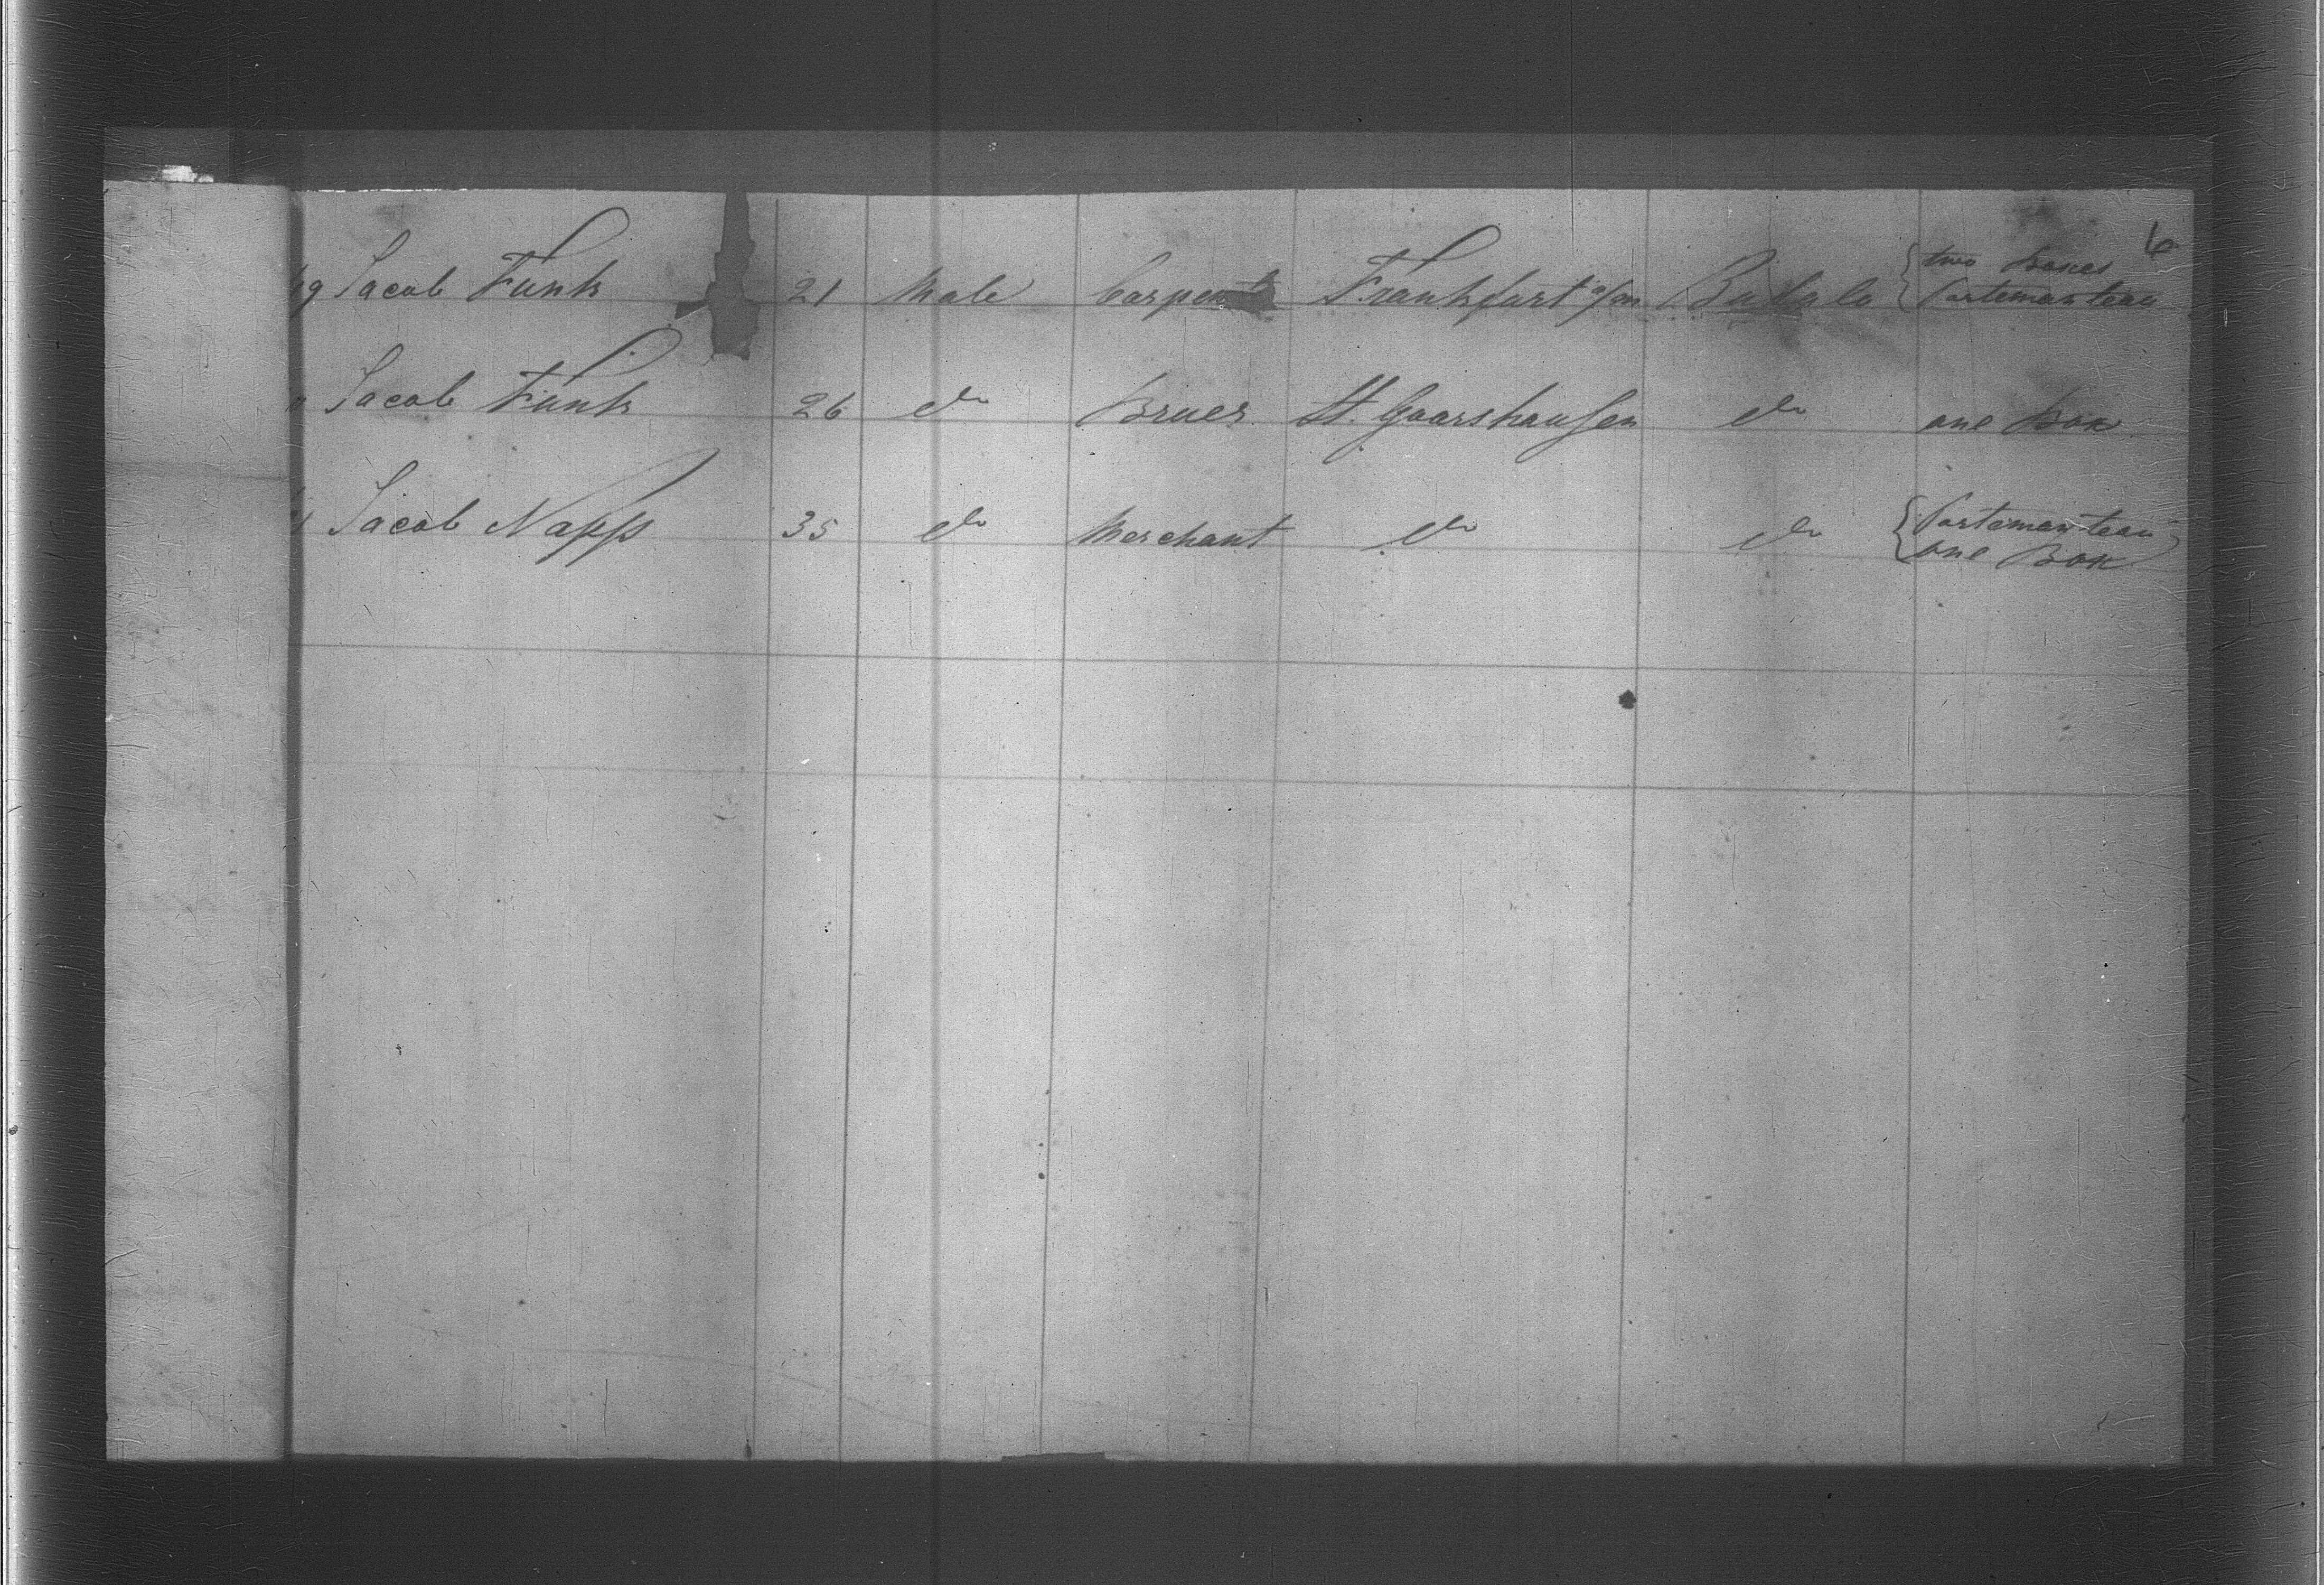 6
two boxes
9 Jacob Funk 21 Male Carpent Frankfurt a/m Bufalo { Portemanteau
Jacob Funk 26 do Bruer St. Goarshausen do one Box
Jacob Napp 35 do Merchant do do { Portemanteau
one Box